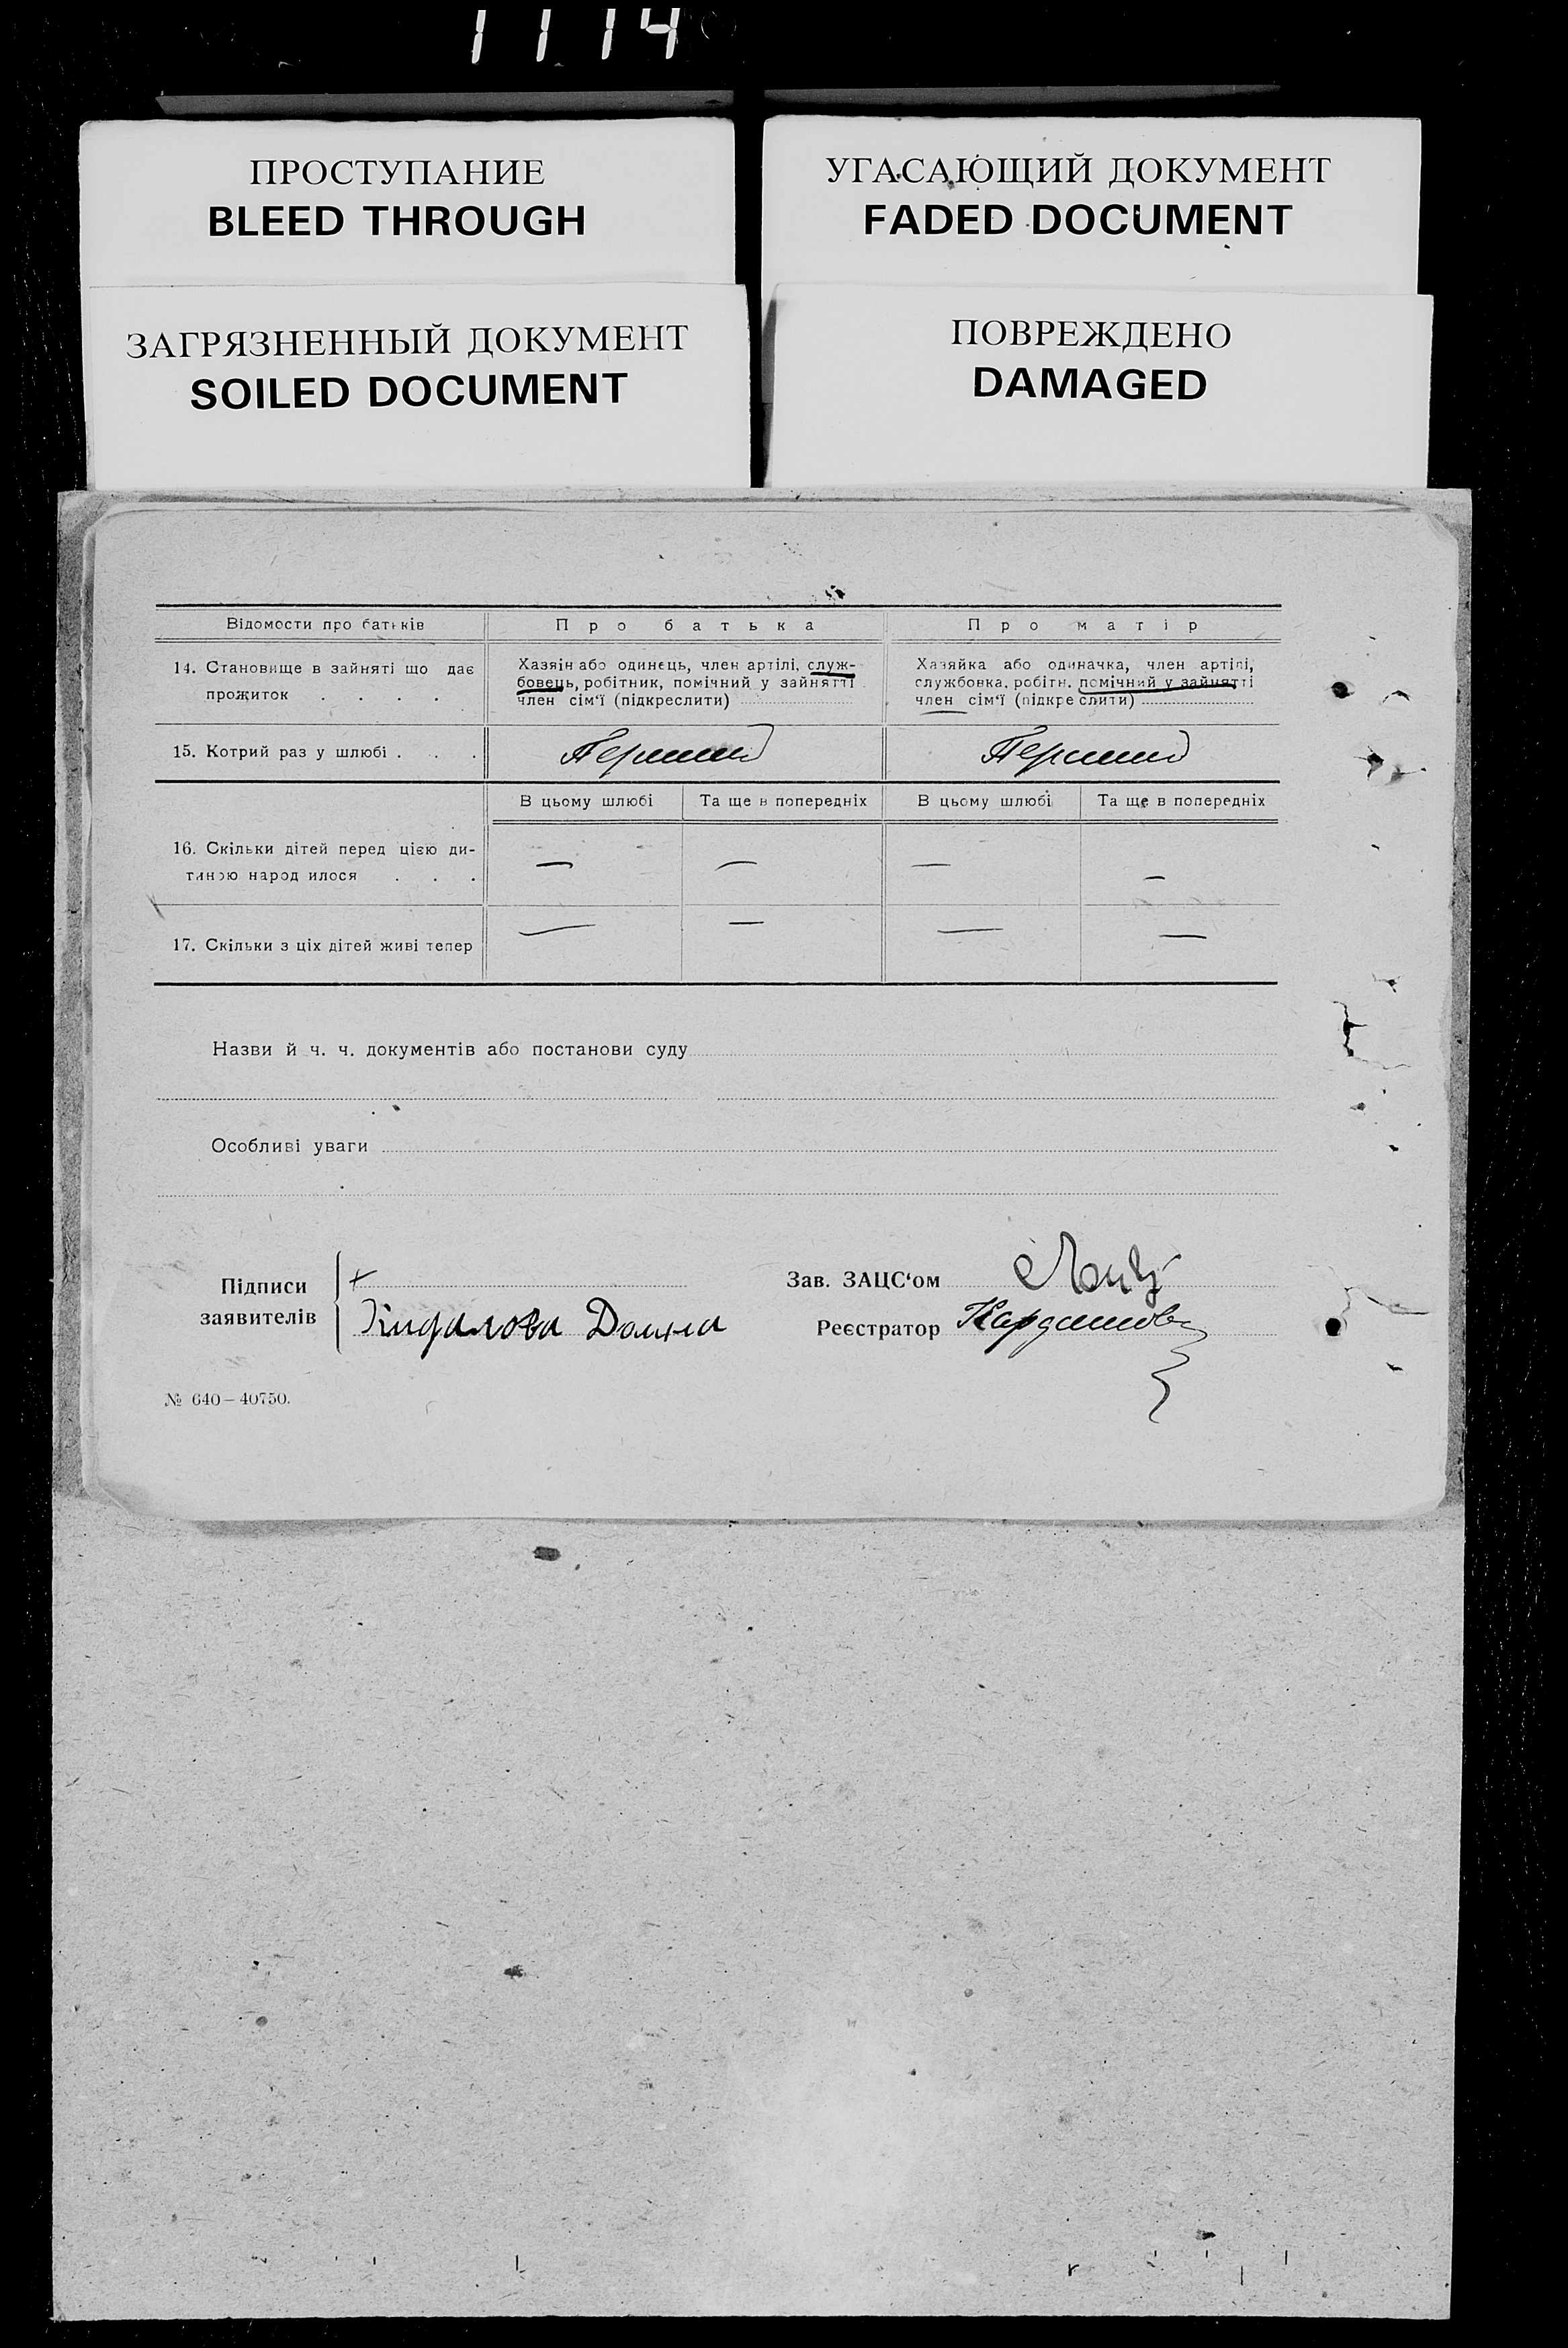 1114
ПРОСТУПАНИЕ
BLEED THROUGH
УГАСАЮЩИЙ ДОКУМЕНТ
FADED DOCUMENT
ЗАГРЯЗНЕННЫЙ ДОКУМЕНТ
SOILED DOCUMENT
ПОВРЕЖДЕНО
DAMAGED
Відомости про батьків
Про батька
Про матір
14. Становище в зайняті що дає
прожиток . . . .
Хазяїн або одинець, член артілі, служ-
бовець, робітник, помічний у зайнятті
член сім‘ї (підкреслити)
Хазяйка або одиначка, член артілі,
службовка, робітн. помічний у зайнятті
член сім‘ї (підкреслити)
15. Котрий раз у шлюбі . . .
Перший
Перший
В цьому шлюбі
Та ще в попередніх
В цьому шлюбі
Та ще в попередніх
16. Скільки дітей перед цією ди-
тиною народилося . . .
— — — —
17. Скільки з ціх дітей живі тепер
— — — —
Назви й ч. ч. документів або постанови суду
Особливі уваги
Підписи
заявителів
+
Домна
Зав. ЗАЦС‘ом
Реєстратор
№ 640—40750.